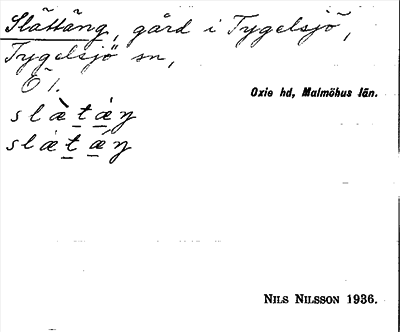 Slättäng, gård i Tygelsjö,
Tygelsjö sn,
Öl.
Oxie hd, Malmöhus län.
slæ̀tæ̀ŋ
slǽtǽŋ
NILS NILSSON 1936.